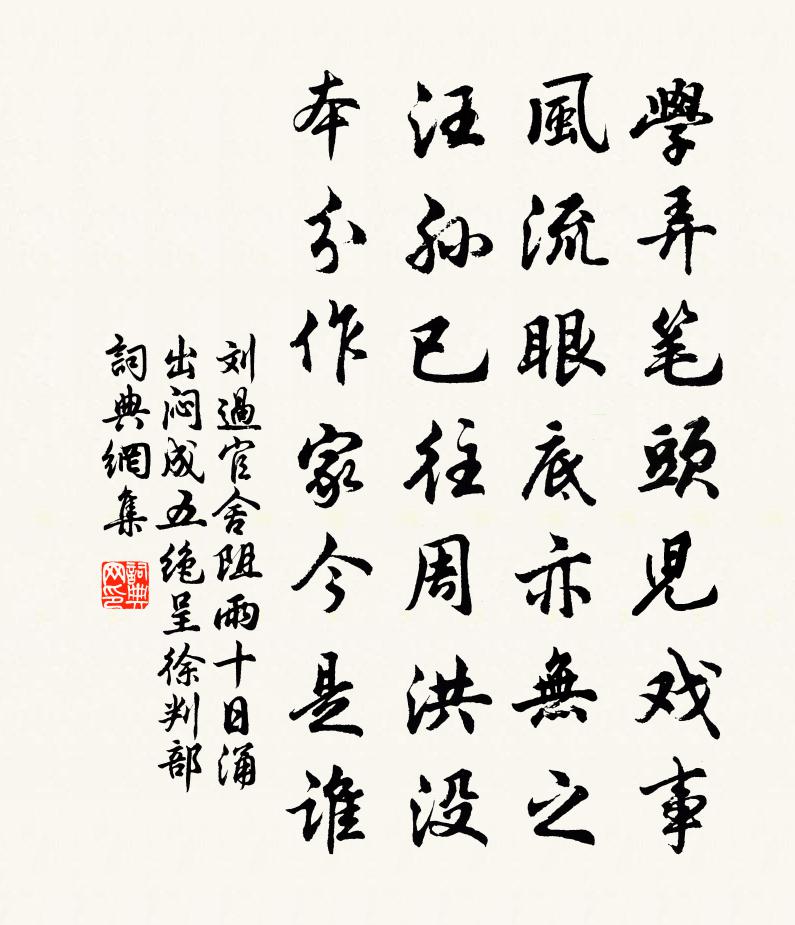 學弄笔頭児戏事
風流眼底亦無之
汪孙已往周洪没
本分作家今是谁
刘過官舍阻雨十日涌
出闷成五绝呈徐判部
詞典網集
詞典网